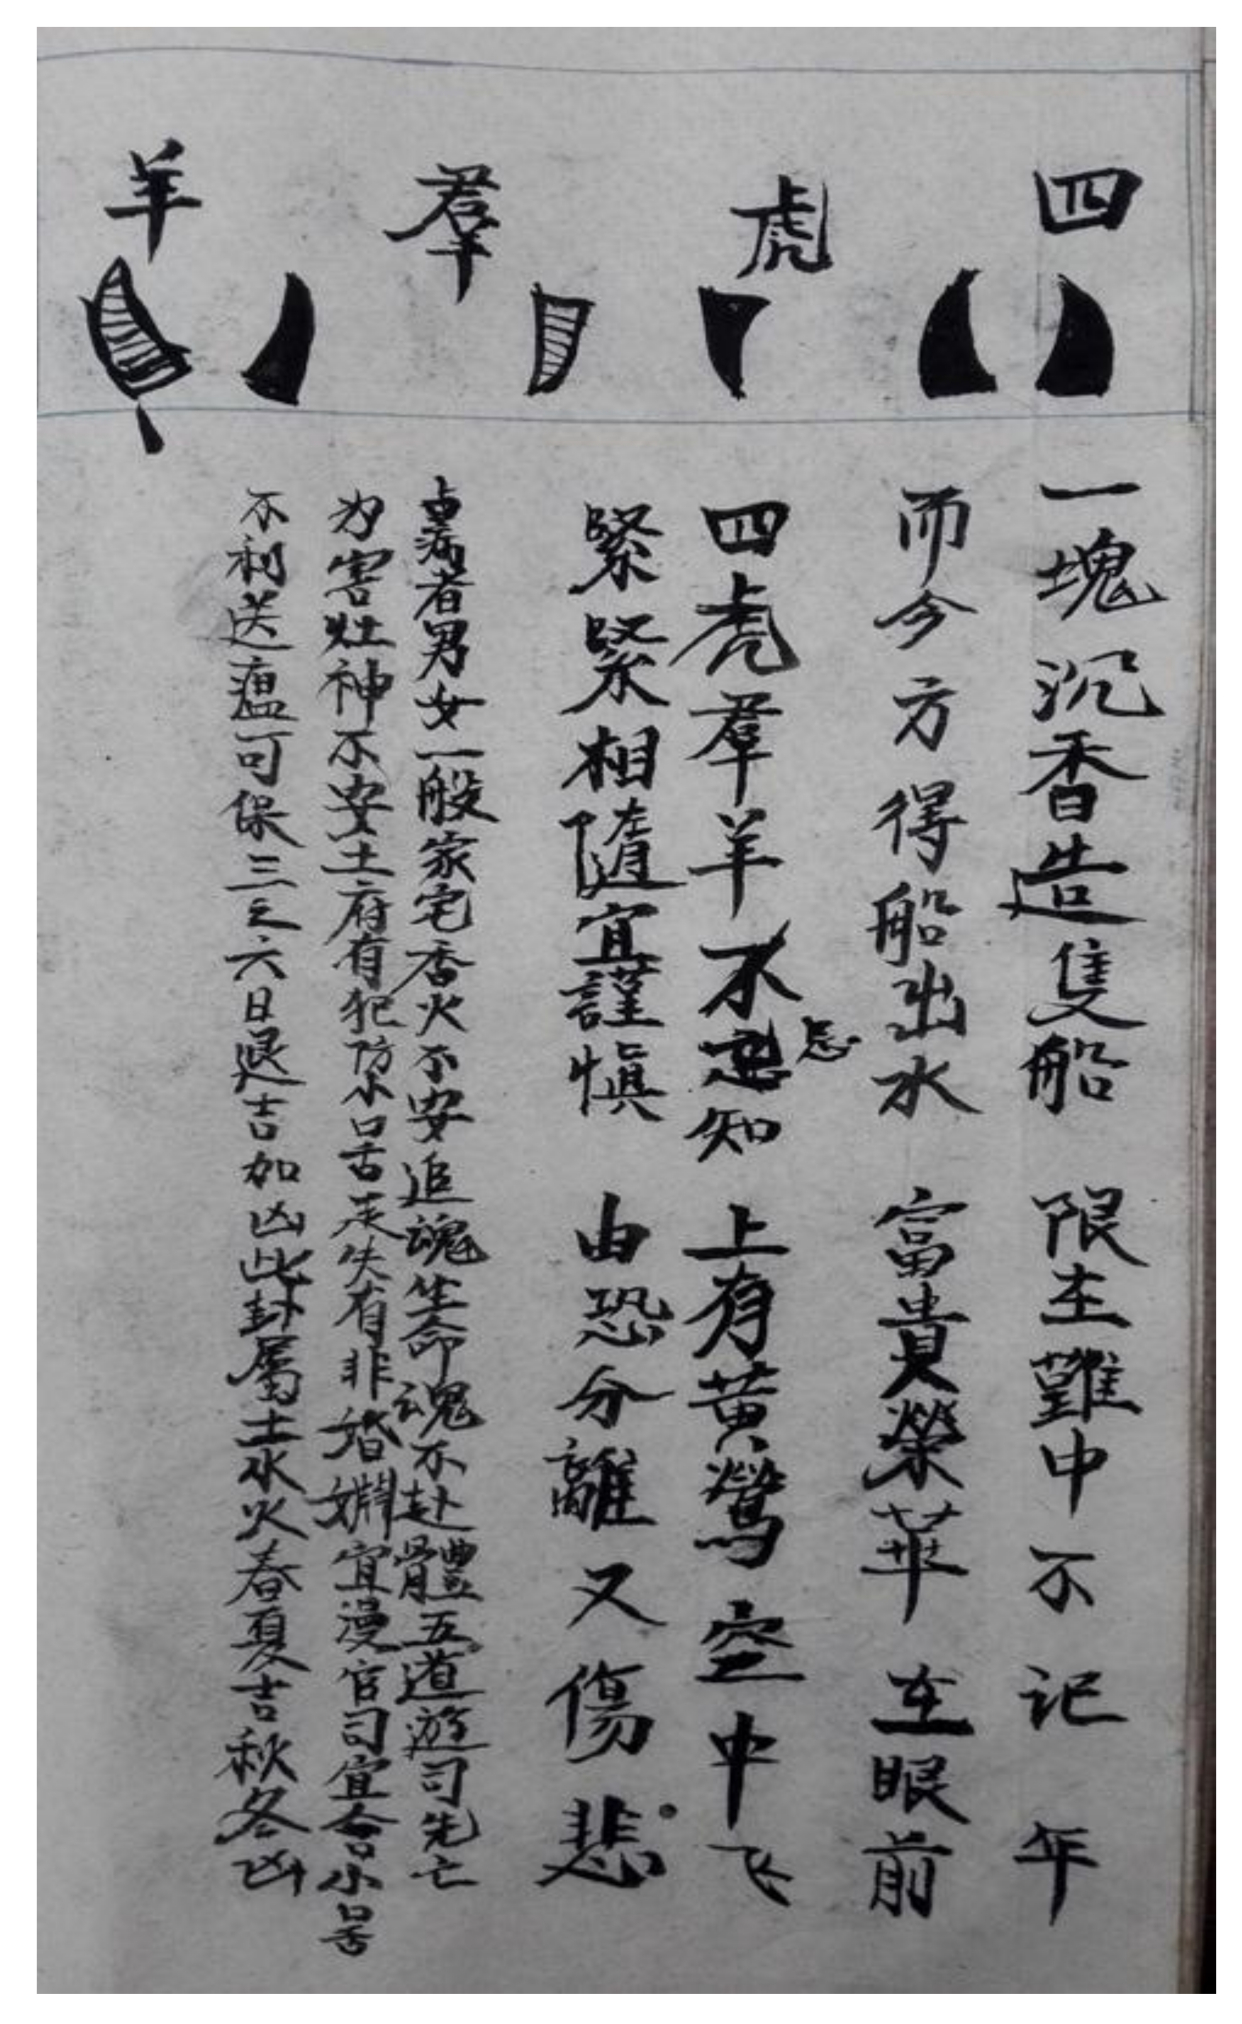 四虎羣羊
一塊沉香造隻船 限在難中不记年
而今方得船出水 富貴榮華在眼前
四虎羣羊不忌知 上有黃鶯空中飞
忌
緊緊相隨宜謹慎 由恐分離又傷悲
占病者男女一般家宅香火不安追魂生命魂不赴體五道遊司先亡
为害灶神不安土府有犯防小口舌走失有非婚姻宜漫官司宜合小口舌
不利送瘟可保三之六日退吉加凶此卦屬土水火春夏吉秋冬凶